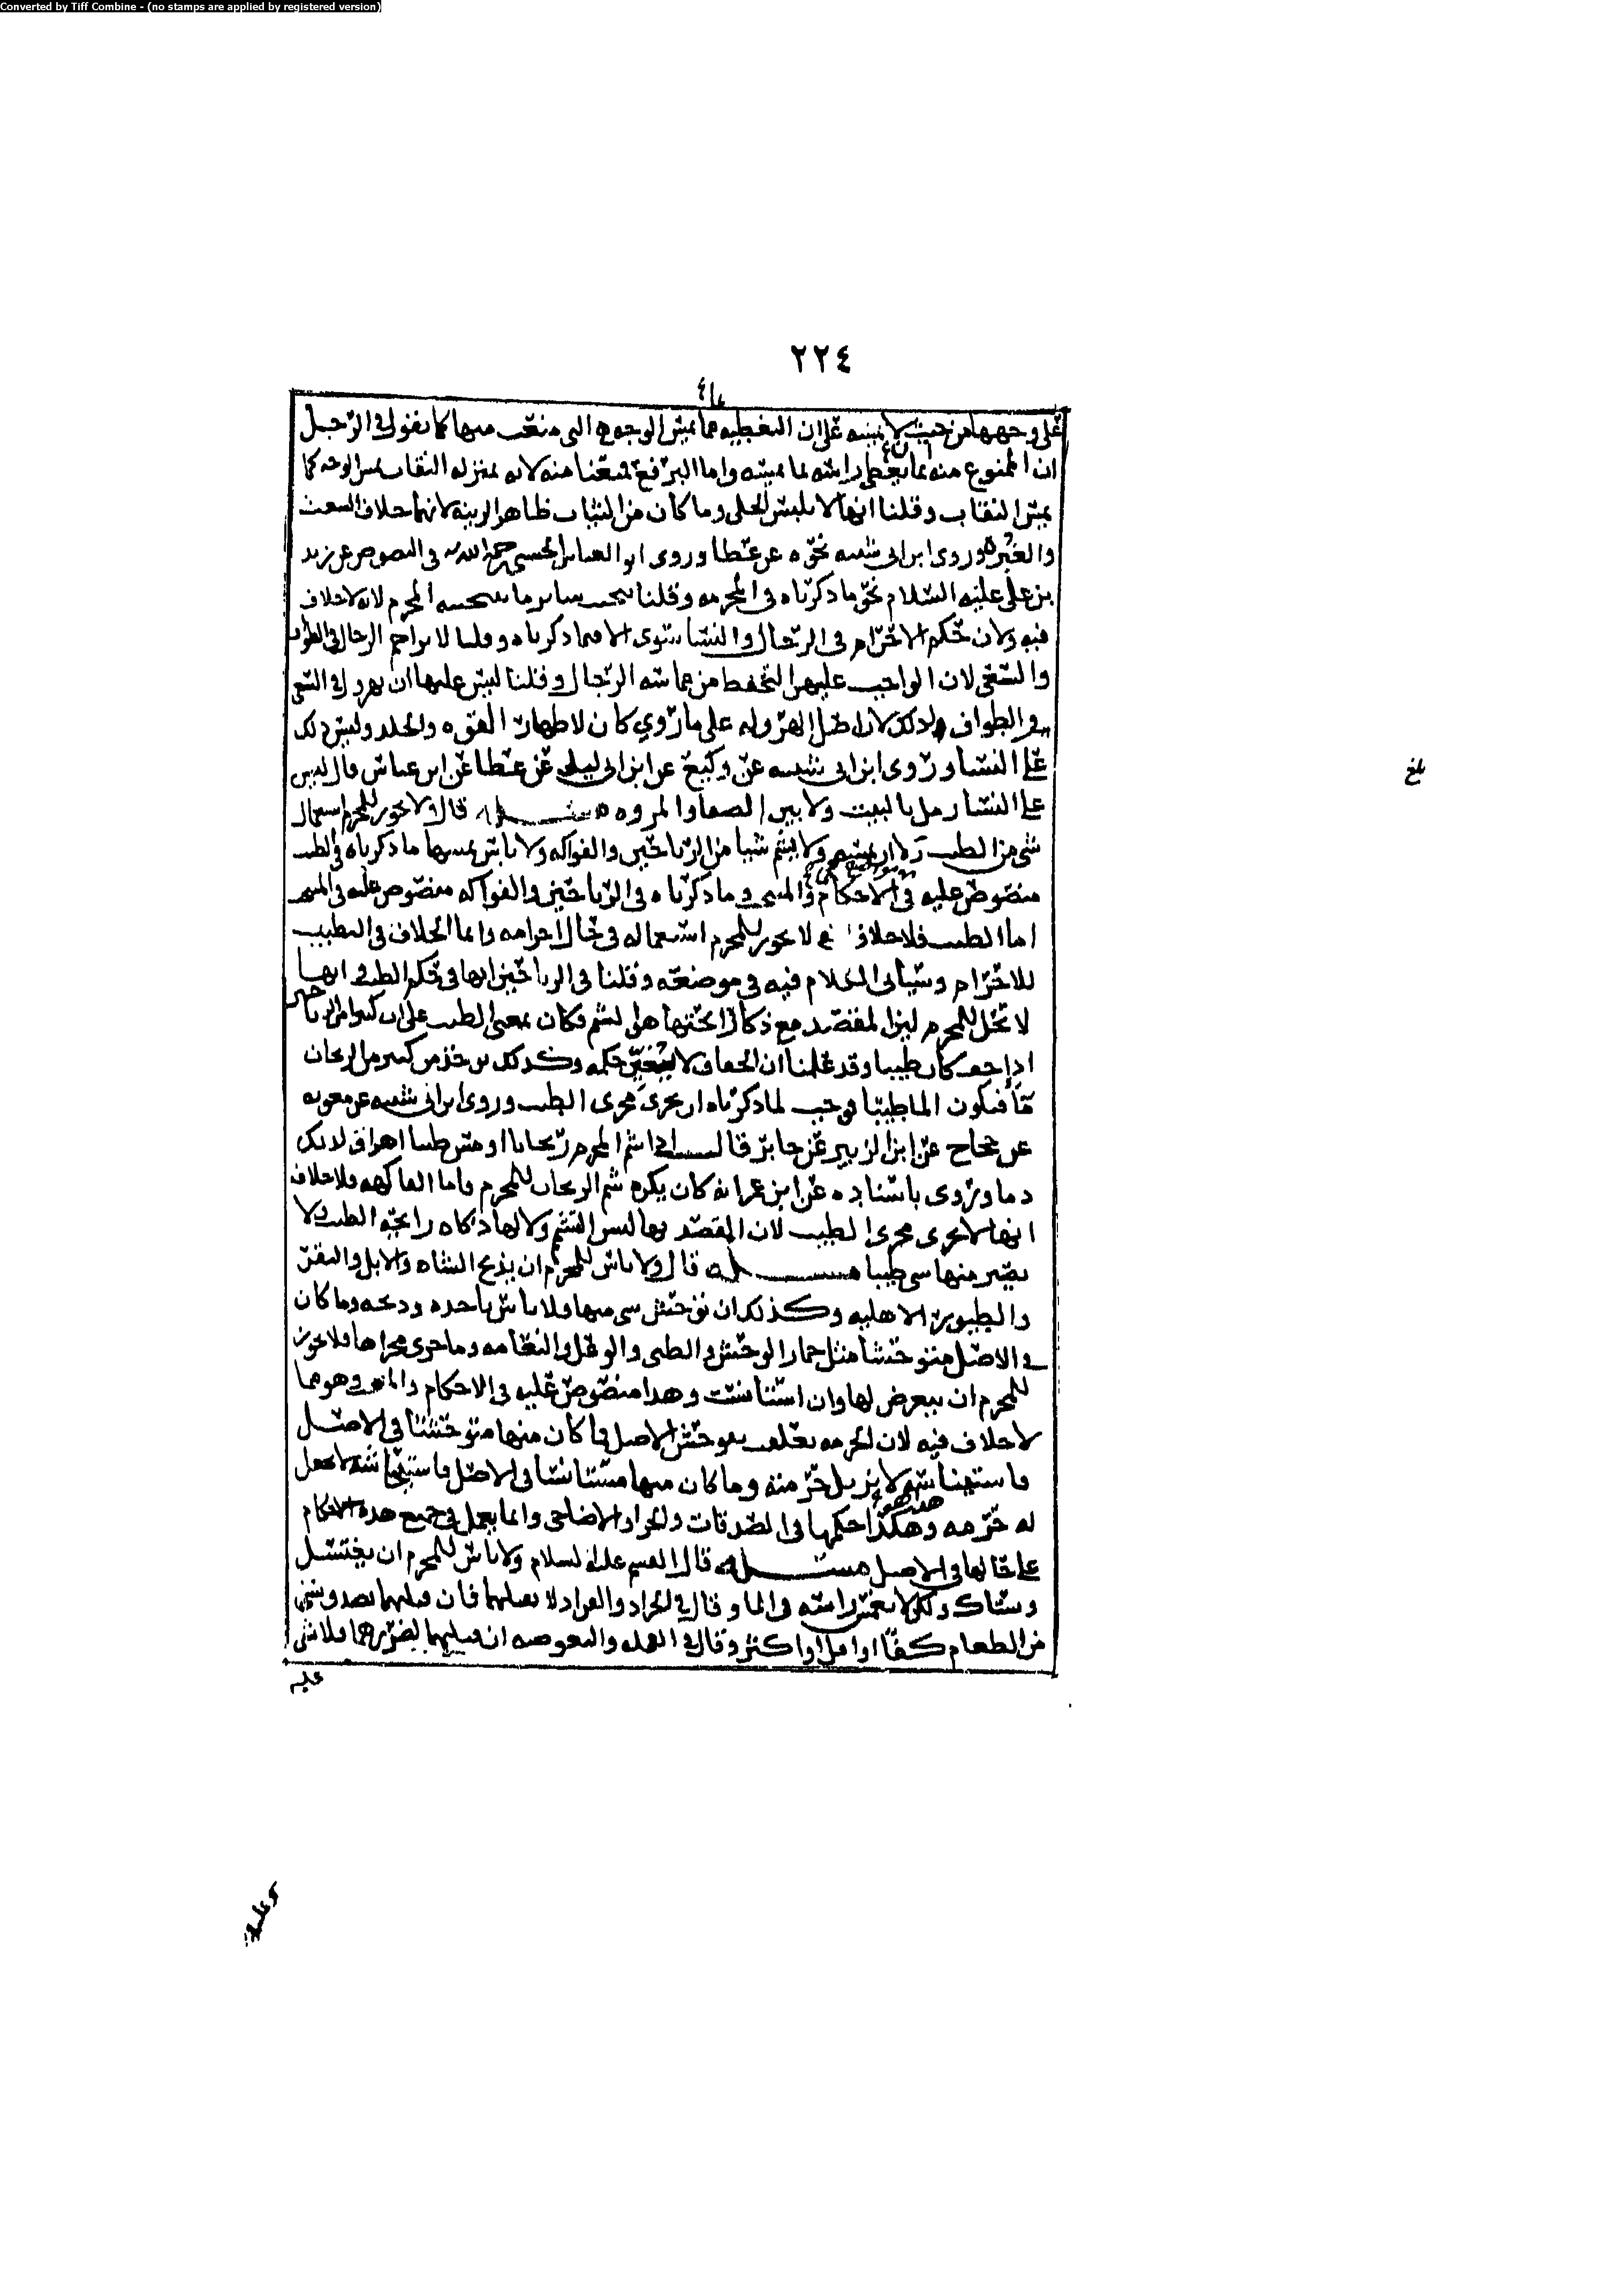 Converted by Tiff Combine - (no stamps are applied by registered version)
٢٢٤
على وجهها من حيث لا يمسه على ان التغطيه مما يمس الوجه هي التي منعت منها كما نقول في الرجل
ان الممنوع منه مما يغطي راسه لما يمسه واما البرقع فمنعنا منه لانه بمنزله النقاب يمس الوجه كما
يمس النقاب وقلنا انها لا تلبس الحلي وما كان من الثياب ظاهر الزينه لانها خلاف الشعث
والغبره وروى ابن ابي شيبه نحوه عن عطا وروى ابو العباس الحسني رحمه الله في النصوص عن زيد
بن علي عليه السلام نحو ما ذكرناه في المحرمه وقلنا تجتنب ساير ما يجتنبه المحرم لانه لا خلاف
فيه ولان حكم الاحرام في الرجال والنسا سوى الا فيما ذكرناه وقلنا لا تزاحم الرجال في الطواف
والسعي لان الواجب عليهن التحفظ من مماسه الرجال وقلنا ليس عليها ان تهرول في السعي
والطواف وذلك لان اصل الهروله على ما روي كان لاظهار القوه والجلد وليس ذلك
على النسا وروى ابن ابي شيبه عن وكيع عن ابن ابي ليلى عن عطا عن ابن عباس قال ليس
على النسا رمل بالبيت ولا بين الصفا والمروه مسئله قال ولا يجوز للمحرم استعمال
شي من الطيب ولا ان يمسه ولا يشم شيا من الرياحين والفواكه ولا باس بمسها ما ذكرناه في الطيب
منصوص عليه في الاحكام والمنتخب وما ذكرناه في الرياحين والفواكه منصوص عليه في المنتخب
اما الطيب فلا خلاف لا يجوز للمحرم استعماله في حال احرامه وانما الخلاف في التطيب
للاحرام وسياتي الكلام فيه في موضعه وقلنا في الرياحين انها في حكم الطيب وانها
لا تحل للمحرم لان المقصد مع ذكا رائحتها هو الشم فكان بمعنى الطيب على ان كثيرا من الرياحين
اذا جف كان طيبا وقد علمنا ان الجفاف لا يغير حكمه وكذلك يوخذ من كثير من الريحان
ما فيكون الما طيبا فوجب لما ذكرناه ان يجرى مجرى الطيب وروى ابن ابي شيبه عن معويه
عن حجاج عن ابن الزبير عن جابر قال اذا شم المحرم ريحانا او مس طيبا اهراق لذلك
دما وروى باسناده عن ابن عمر انه كان يكره شم الريحان للمحرم واما الفاكهه فلا خلاف
انها لا تجرى مجرى الطيب لان المقصد بها ليس التشمم ولا لها ذكاه رايحه الطيب ولا
يصير منها شي طيبا مسئله قال ولا باس للمحرم ان يذبح الشاه والابل والبقر
والطيور الاهليه وكذلك ان توحش شي منها ولا باس باخذه وذبحه وما كان
في الاصل متوحشا مثل حمار الوحش والظبي والوعل والنعامه وما جرى مجراها فلا يجوز
للمحرم ان يتعرض لها وان استانست وهذا منصوص عليه في الاحكام والمنتخب وهو مما
لا خلاف فيه لان الحرمه تعلقت بتوحش الاصل فما كان منها متوحشا في الاصل
فاستيناسه لا يزيل حرمته وما كان منها مستانسا في الاصل فاستيحاشه لا يجعل
له حرمه وهكذا حكمها في الصدقات والجزا والاضاحي وانما يعمل في جميع هذه الاحكام
على حالها في الاصل مسئله قال القسم عليه السلام ولا باس للمحرم ان يغتسل
ويستاك ولكن لا يغمس راسه في الما وقال في الجراد والقراد لا يقتلهما فان قتلهما تصدق بشي
من الطعام كفا او اقل او اكثر وقال في القمله والبعوضه ان قتلهما لضررهما فلا شي
عليه
بلغ